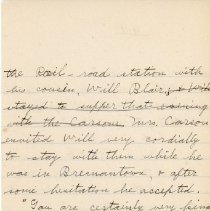 the Rail-road station with
his cousin, Will Blair, & Will
stayed to supper that evening
with the Carsons. Mrs. Carson
envited Will very cordially
to stay with them while he
was in Bremantown, & after
some hesitation he accepted.
"You are certainly very kind